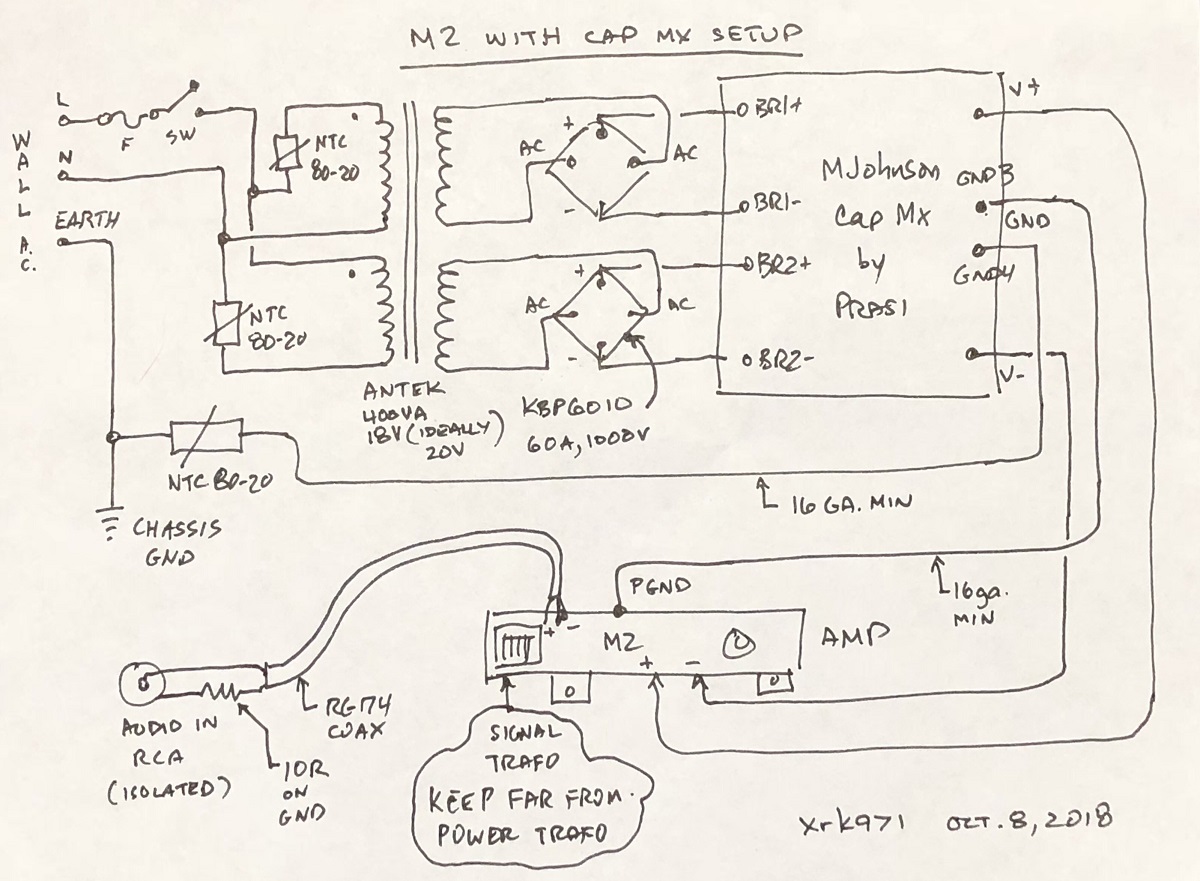 M2 WITH CAP MX SETUP
WALL A.C.
L
F
SW
N
EARTH
NTC
80-20
NTC
80-20
AC
+
AC
-
AC
+
AC
-
BR1+
BR1-
BR2+
BR2-
MJohnson
Cap Mx
by
PRASI
V+
GND3
GND
GND4
V-
ANTEK
400VA
18V (IDEALLY)
20V
KBPG010
60A, 1000V
NTC 80-20
16 GA. MIN
CHASSIS
GND
PGND
16ga.
MIN
+ -
M2
+ -
AMP
RG174
COAX
AUDIO IN
RCA
(ISOLATED)
10R
ON
GND
SIGNAL
TRAFO
KEEP FAR FROM
POWER TRAFO
xrk971 OCT. 8, 2018